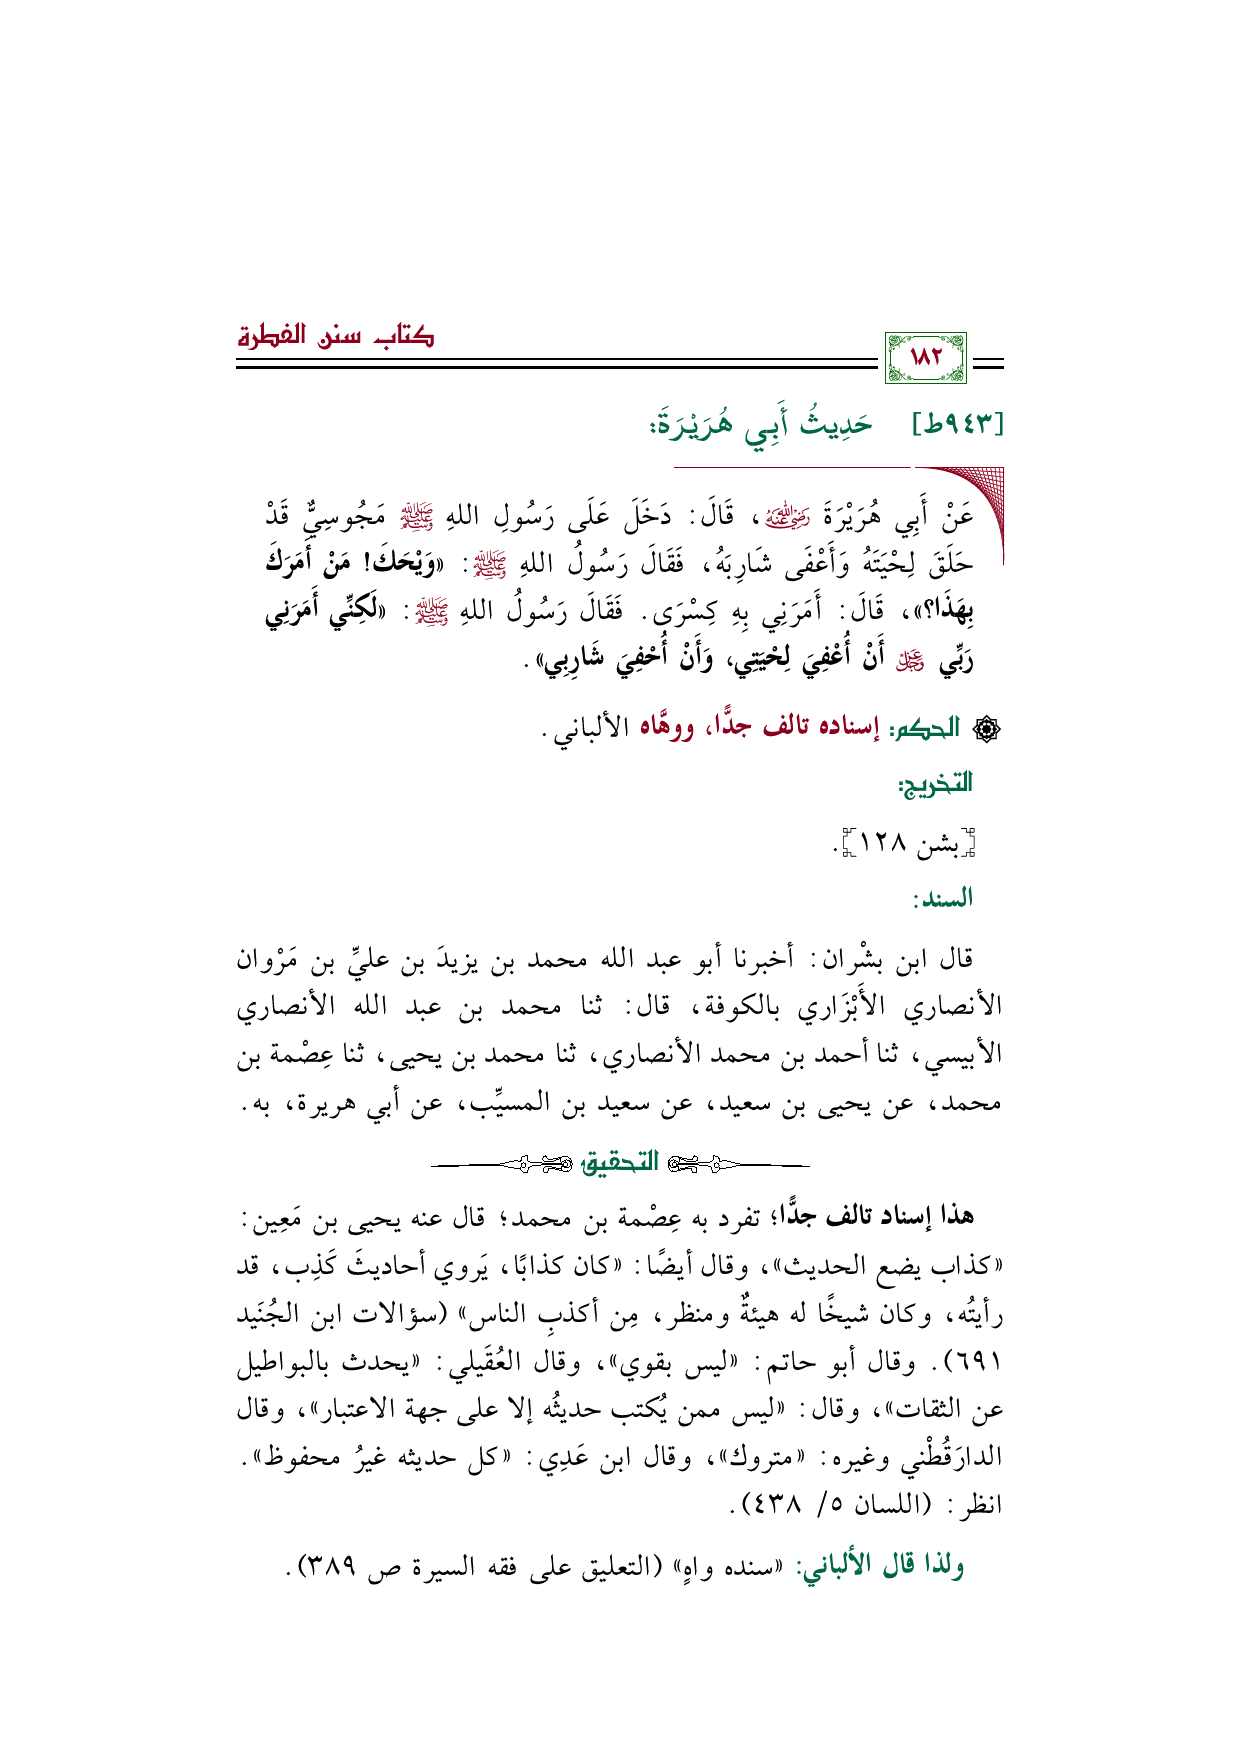 كتاب سنن الفطرة
١٨٢
[٩٤٣ط] حَدِيثُ أَبِي هُرَيْرَةَ:
عَنْ أَبِي هُرَيْرَةَ رضي الله عنه، قَالَ: دَخَلَ عَلَى رَسُولِ اللهِ ﷺ مَجُوسِيٌّ قَدْ
حَلَقَ لِحْيَتَهُ وَأَعْفَى شَارِبَهُ، فَقَالَ رَسُولُ اللهِ ﷺ: «وَيْحَكَ! مَنْ أَمَرَكَ
بِهَذَا؟»، قَالَ: أَمَرَنِي بِهِ كِسْرَى. فَقَالَ رَسُولُ اللهِ ﷺ: «لَكِنِّي أَمَرَنِي
رَبِّي عز وجل أَنْ أُعْفِيَ لِحْيَتِي، وَأَنْ أُحْفِيَ شَارِبِي».
الحكم: إسناده تالف جدًّا، ووهَّاه الألباني.
التخريج:
[بشن ١٢٨].
السند:
قال ابن بشْران: أخبرنا أبو عبد الله محمد بن يزيدَ بن عليِّ بن مَرْوان
الأنصاري الأَبْزَاري بالكوفة، قال: ثنا محمد بن عبد الله الأنصاري
الأبيسي، ثنا أحمد بن محمد الأنصاري، ثنا محمد بن يحيى، ثنا عِصْمة بن
محمد، عن يحيى بن سعيد، عن سعيد بن المسيِّب، عن أبي هريرة، به.
التحقيق
هذا إسناد تالف جدًّا؛ تفرد به عِصْمة بن محمد؛ قال عنه يحيى بن مَعِين:
«كذاب يضع الحديث»، وقال أيضًا: «كان كذابًا، يَروي أحاديثَ كَذِب، قد
رأيتُه، وكان شيخًا له هيئةٌ ومنظر، مِن أكذبِ الناس» (سؤالات ابن الجُنَيد
٦٩١). وقال أبو حاتم: «ليس بقوي»، وقال العُقَيلي: «يحدث بالبواطيل
عن الثقات»، وقال: «ليس ممن يُكتب حديثُه إلا على جهة الاعتبار»، وقال
الدارَقُطْني وغيره: «متروك»، وقال ابن عَدِي: «كل حديثه غيرُ محفوظ».
انظر: (اللسان ٥/ ٤٣٨).
ولذا قال الألباني: «سنده واهٍ» (التعليق على فقه السيرة ص ٣٨٩).